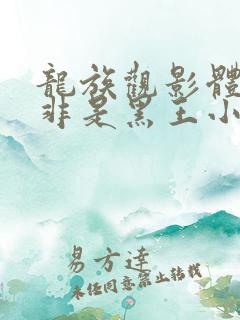 龍族觀影體
非是黑王小
易方達
未經同意禁止轉載